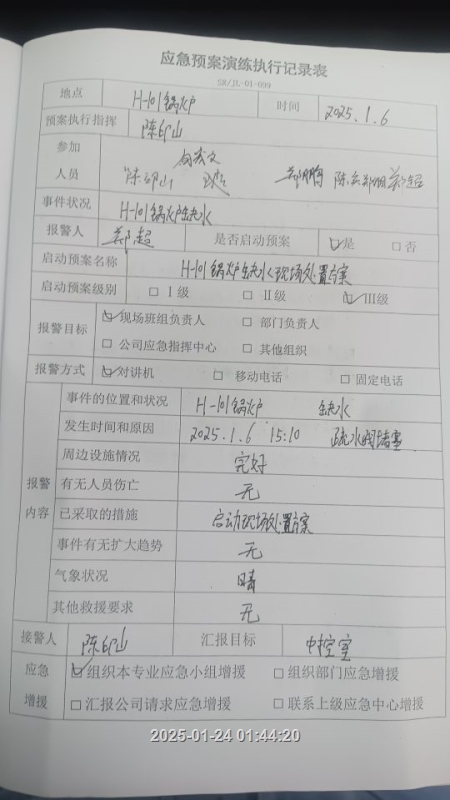 应急预案演练执行记录表
SR/JL-01-099
地点 H-101锅炉 时间 2025.1.6
预案执行指挥 陈印山
参加
人员 陈印山
事件状况 H-101锅炉缺水
报警人 郑超 是否启动预案 ☑是 □否
启动预案名称 H-101锅炉缺水现场处置方案
启动预案级别 □ I级 □ II级 ☑ III级
报警目标 ☑现场班组负责人 □ 部门负责人
□ 公司应急指挥中心 □ 其他组织
报警方式 ☑对讲机 □ 移动电话 □ 固定电话
报警内容
事件的位置和状况 H-101锅炉 缺水
发生时间和原因 2025.1.6 15:10 疏水阀堵塞
周边设施情况 完好
有无人员伤亡 无
已采取的措施 启动现场处置方案
事件有无扩大趋势 无
气象状况 晴
其他救援要求 无
接警人 陈印山 汇报目标 中控室
应急增援
☑组织本专业应急小组增援 □组织部门应急增援
□汇报公司请求应急增援 □联系上级应急中心增援
2025-01-24 01:44:20